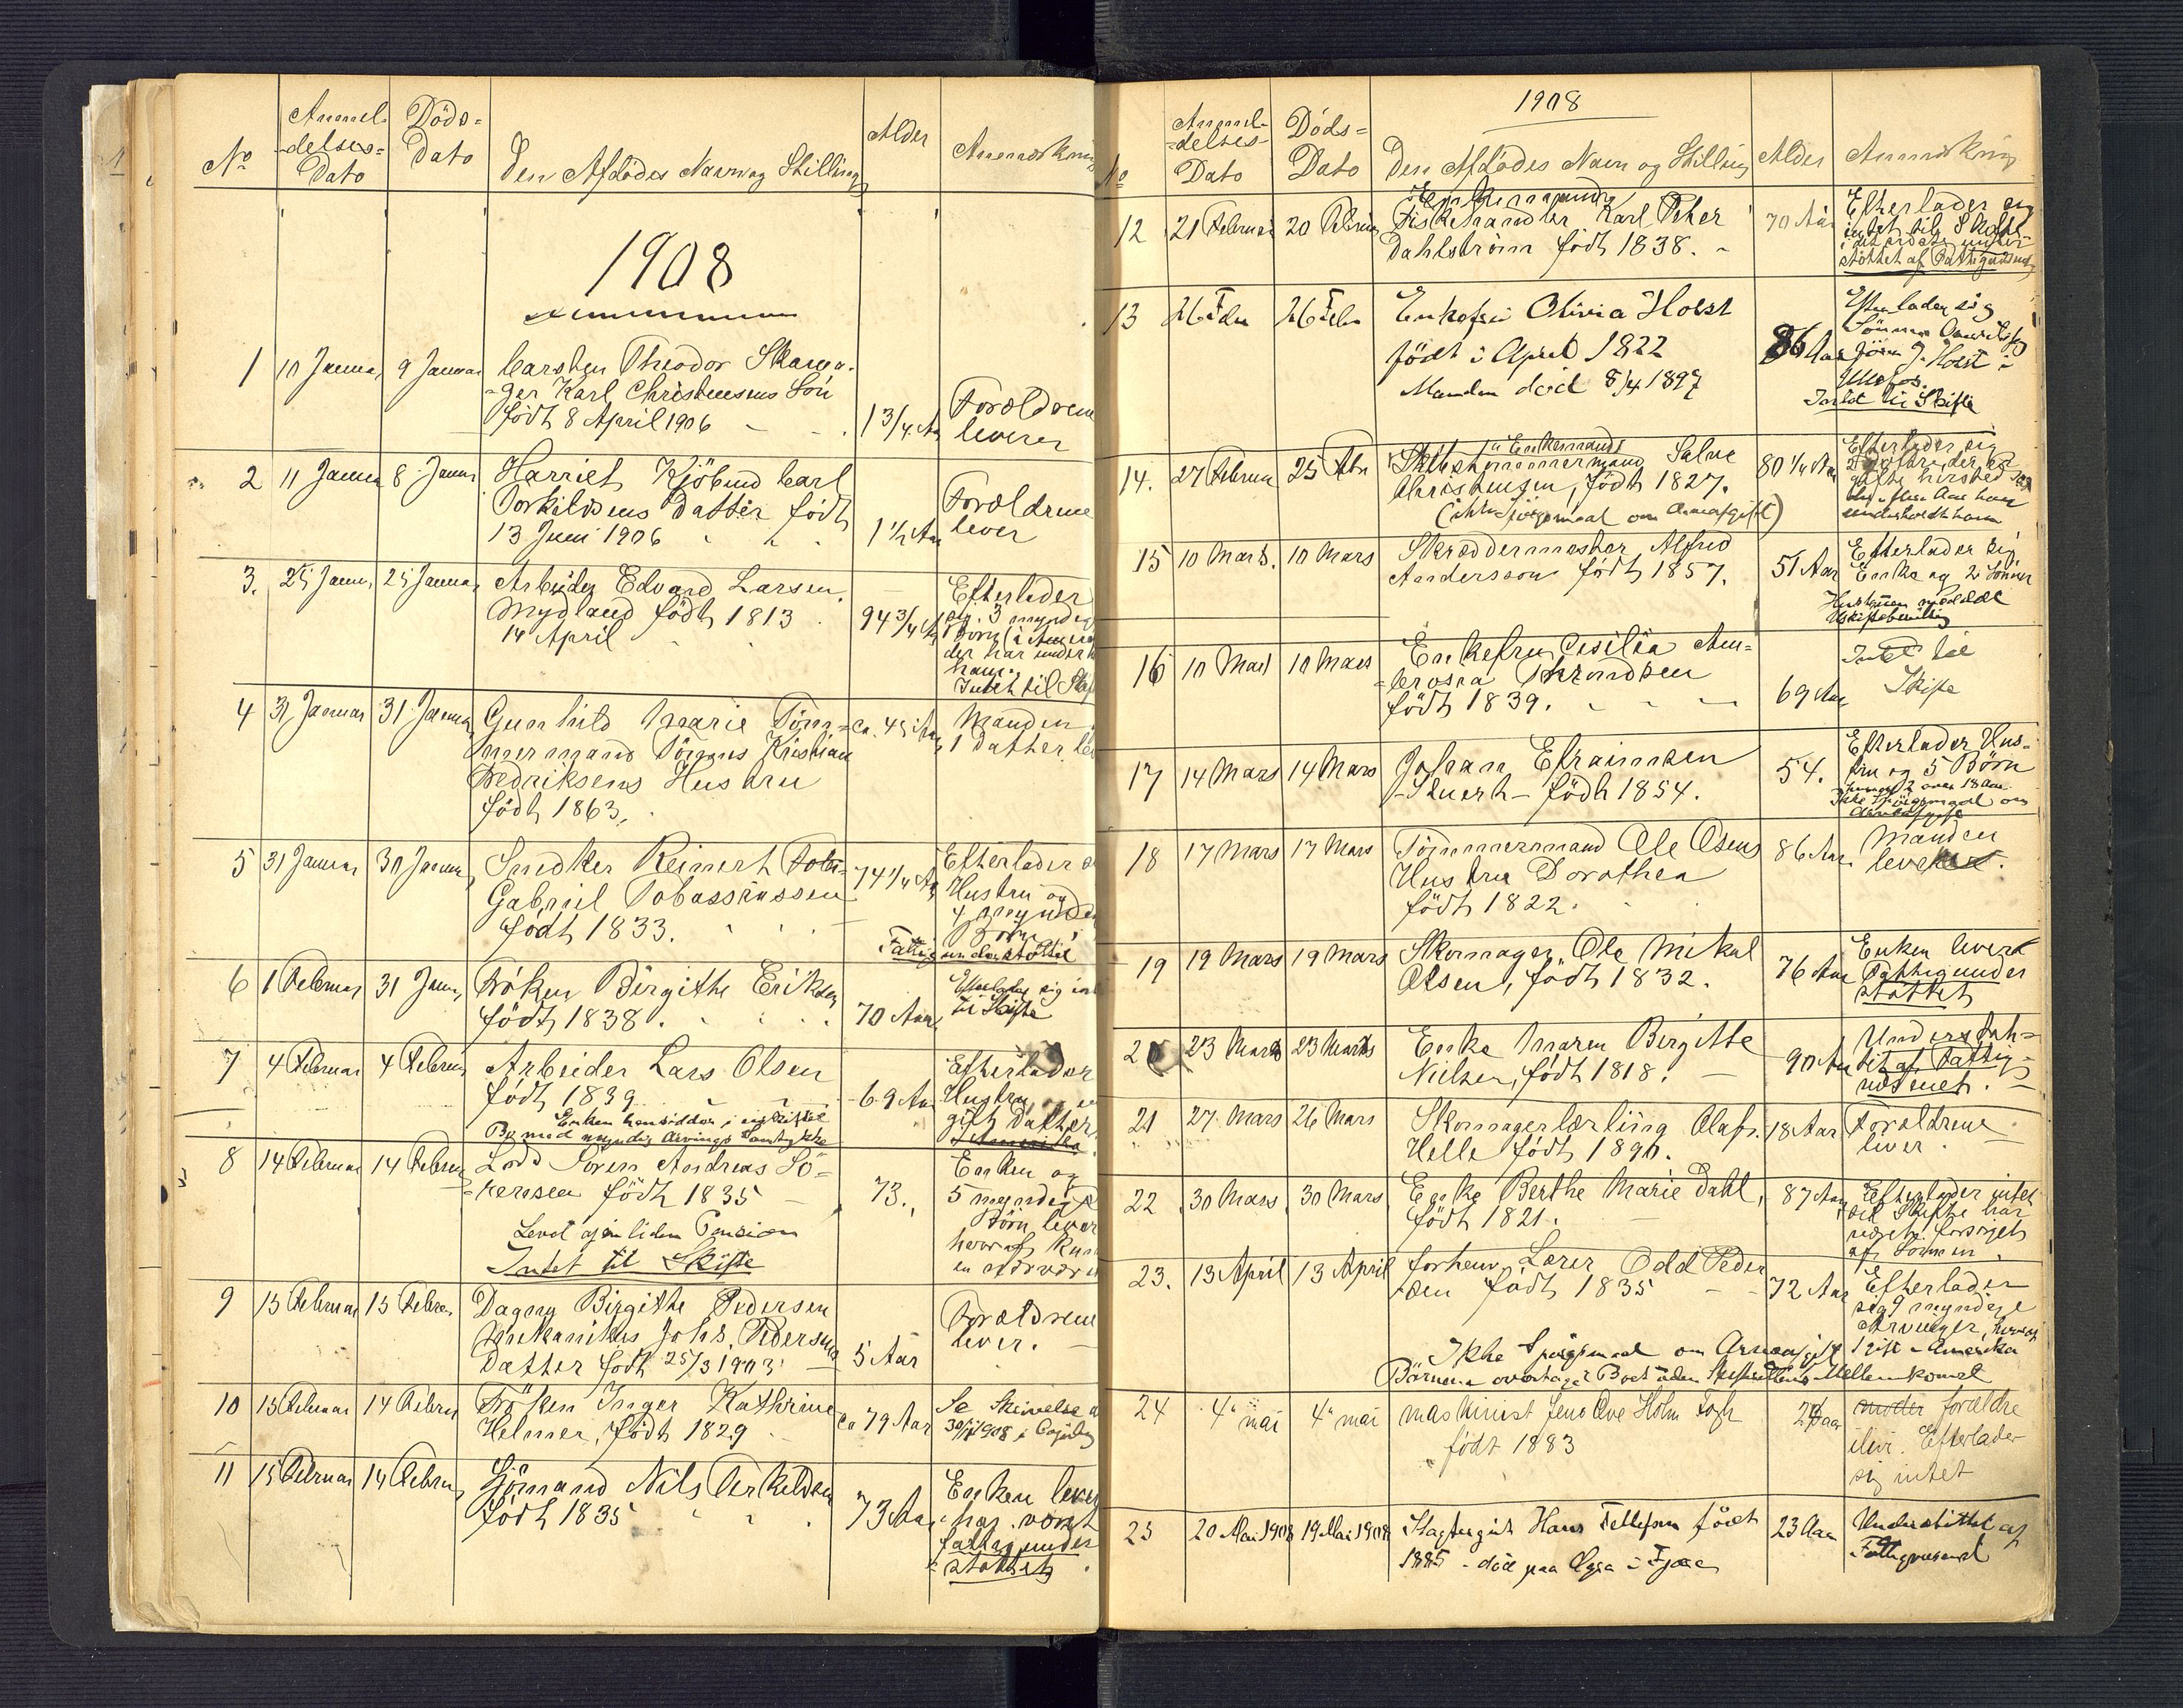 Anmel-
delses-
Dato
Döds-
Dato
No
Den Afdödes Navn og Stilling
Alder
1908
1
10 Januar
9 Januar
Carsten Theodor Skoma-
ger Karl Christensens Sön
född 8 April 1906
1 3/4 Aar
Forældrene
lever
2
11 Januar
8 Januar
Harriet Kjölund Carl
Torkildsens Datter födt
13 Juni 1906
1 1/2 Aar
Forældrene
lever
3.
25 Januar
25 Januar
Arbeider Edvard Larsen
Mydland födt 1813
14 April
94 3/4 Aar
Efterlader
sig 3 myndige
Börn i
der har
ham.
Intet til
4
31 Januar
31 Januar
Gunhild Marie Töm-
mermand Tönnes Kristian
Fredriksens Hustru
födt 1863.
ca. 45 Aar
Manden
1 Datter
5
31 Januar
30 Januar
Snedker Reinert
Gabriel Tobiassen
födt 1833.
74 1/4 Aar
Efterlader
Hustru og
4 myndige
Börn
Fattigunderstöttet
6
1 Februar
31 Januar
Fröken Birgithe Eriksen
födt 1838.
70 Aar
Efterlader sig
til Skifte
7
4 Februar
4 Februar
Arbeider Lars Olsen
födt 1839
69 Aar
Enken hensidder i uskiftet
Bo med myndig Arvings Samtykke
Efterlader
Hustru
gift Datter
8
14 Februar
14 Februar
Lods Sören Andreas Sö-
rensen födt 1835
73.
Levet af en liden Pension
Intet til Skifte
Enken og
5 myndige
Börn lever
hvoraf
9
13 Februar
13 Februar
Dagny Birgithe Pedersen
Mekanikus Johs. Pedersens
Datter födt 25/3 1903
5 Aar
Forældrene
lever.
10
15 Februar
14 Februar
Fröken Inger Kathrine
Helmer, födt 1829
ca 79 Aar
Se Skrivelse
1908 i
11
15 Februar
14 Februar
Sjömand Nils Terkelsen
födt 1835
73 Aar
Enken lever
har været
fattigunder
stöttet
1908
No
Anmel-
delses-
Dato
Döds-
Dato
Den Afdödes Navn og Stilling
Alder
Anmærkning
12
21 Februar
20 Februar
Enkemand
Fiskehandler Karl Peter
Dahlström födt 1838.
70 Aar
Efterlader sig
intet til Skifte
stöttet af
13
26 Febr
26 Febr
Enkefru Olivia Holst
födt i April 1822
Manden död 8/4 1897
86 Aar
Efterlader sig
Holst i
Intet til Skifte
14.
27 Februar
25 Febr
Enkemand
Salve
Christensen, födt 1827.
(ikke spörgsmaal om Arveafgift)
80 1/4 Aar
Efterlader sig
15
10 Mars.
10 Mars
Skreddermester Alfred
Andersson födt 1857.
51 Aar
Efterlader sig
Enke og 2 Sönner
Hustruen meddelt
Uskiftebevilling
16
10 Mars
10 Mars
Enkefru Cesilia Am-
brosia Throndsen
födt 1839.
69 Aar
Intet til
Skifte
17
14 Mars
14 Mars
Johan Efraimsen
Stuert födt 1854.
54.
Efterlader Hus-
tru og 5 Börn
over 18 Aar
Ikke Spörgsmaal om
Arveafgift
18
17 Mars
17 Mars
Tömmermand Ole Olsens
Hustru Dorothea
födt 1822.
86 Aar
Manden
lever.
19
19 Mars
19 Mars
Skomager Ole Mikal
Olsen, födt 1832.
76 Aar
Enken lever
Fattigunder
stöttet
20
23 Mars
23 Mars
Enke Maren Birgitte
Nielsen, födt 1818.
90 Aar
Understöt-
tet af Fattig-
væsenet.
21
27. Mars
26 Mars
Skomagerlærling Olaf
Helle födt 1890.
18 Aar
Forældrene
lever.
22
30 Mars
30 Mars
Enke Berthe Marie Dahl,
födt 1821.
87 Aar
Efterlader intet
til Skifte har
været forsörget
af Sönnen.
23.
13 April
13 April
forhenv. Lærer Odd Peder
sen födt 1835
72 Aar
Efterlader
sig 9 myndige
Arvinger, hvoraf
1 gift i Amerika
Ikke Spörgsmaal om Arveafgift
Börnene overtager Boet uden Skifterettens Mellemkomst
24
4de mai
4de mai
maskinist Jens Ove Holm
födt 1883
24 aar
moder forældre
ilive. Efterlader
sig intet
25
20 Mai 1908
19 Mai 1908
Slagtergut Hans Tellefsen födt
1885 - död paa i
23 Aar
Understöttet af
Fattigvæsenet